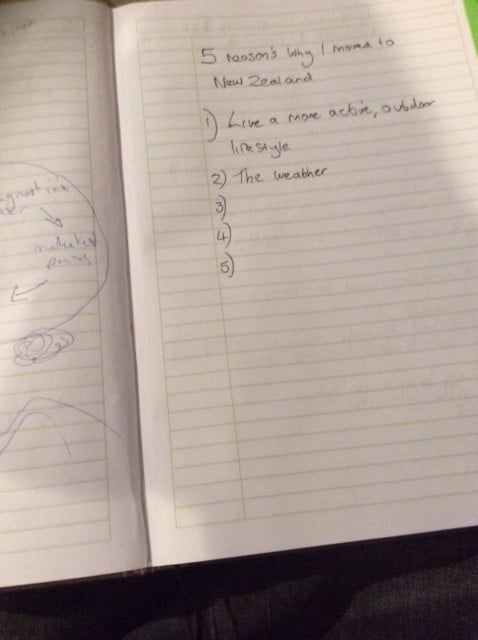 5 reason's why I moved to
New Zealand
1) Live a more active, outdoor
lifestyle
2) The weather
3)
4)
5)